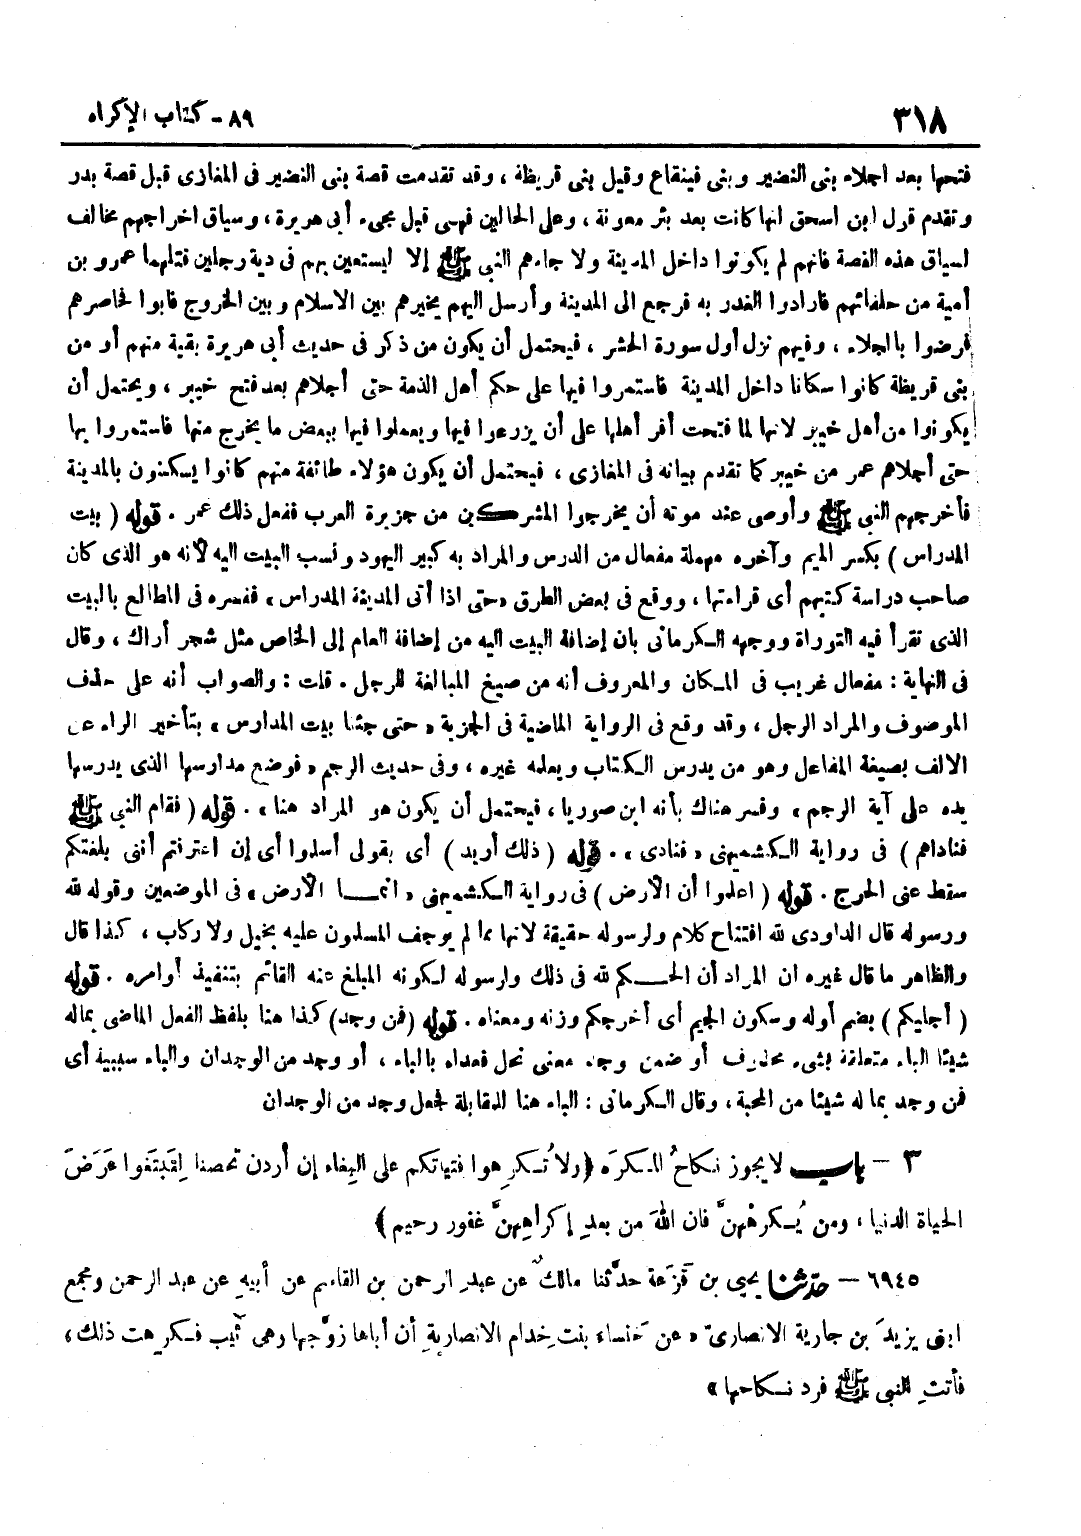 ٣١٨
٨٩ - كتاب الإكراه
فتحها بعد اجلاء بنى النضير وبنى قينقاع وقيل بنى قريظة ، وقد تقدمت قصة بنى النضير فى المغازى قبل قصة بدر
وتقدم قول ابن اسحق انها كانت بعد بئر معونة ، وعلى الحالين فهى قبل مجىء أبى هريرة ، وسياق اخراجهم مخالف
لسياق هذه القصة فانهم لم يكونوا داخل المدينة ولا جاءهم النبى ﷺ إلا ليستعين بهم فى دية رجلين قتلهما عمرو بن
أمية من حلفائهم فارادوا الغدر به فرجع الى المدينة وأرسل اليهم يخيرهم بين الاسلام وبين الخروج فابوا فحاصرهم
فرضوا بالجلاء ، وفيهم نزل أول سورة الحشر ، فيحتمل أن يكون من ذكر فى حديث أبى هريرة بقية منهم أو من
بنى قريظة كانوا سكانا داخل المدينة فاستمروا فيها على حكم أهل الذمة حتى أجلاهم بعد فتح خيبر ، ويحتمل أن
يكونوا من أهل خيبر لانها لما فتحت أقر أهلها على أن يزرعوا فيها ويعملوا فيها ببعض ما يخرج منها فاستمروا بها
حتى أجلاهم عمر من خيبر كما تقدم بيانه فى المغازى ، فيحتمل أن يكون هؤلاء طائفة منهم كانوا يسكنون بالمدينة
فأخرجهم النبى ﷺ وأوصى عند موته أن يخرجوا المشركين من جزيرة العرب ففعل ذلك عمر . قوله ( بيت
المدراس ) بكسر الميم وآخره مهملة مفعال من الدرس والمراد به كبير اليهود ونسب البيت اليه لأنه هو الذى كان
صاحب دراسة كتبهم أى قراءتها ، ووقع فى بعض الطرق « حتى اذا أتى المدينة المدراس » ففسره فى المطالع بالبيت
الذى تقرأ فيه التوراة ووجهه الكرمانى بان إضافة البيت اليه من إضافة العام إلى الخاص مثل شجر أراك ، وقال
فى النهاية : مفعال غريب فى المكان والمعروف أنه من صيغ المبالغة للرجل . قلت : والصواب أنه على حذف
الموصوف والمراد الرجل ، وقد وقع فى الرواية الماضية فى الجزية « حتى جئنا بيت المدارس » بتأخير الراء عن
الالف بصيغة المفاعل وهو من يدرس الكتاب ويعلمه غيره ، وفى حديث الرجم « فوضع مدارسها الذى يدرسها
يده على آية الرجم » وفسر هناك بأنه ابن صوريا ، فيحتمل أن يكون هو المراد هنا . قوله ( فقام النبى ﷺ
فناداهم ) فى رواية الكشميهنى « فنادى » . قوله ( ذلك أريد ) أى بقولى أسلموا أى إن اعترفتم أننى بلغتكم
سقط عنى الحرج . قوله ( اعلموا أن الأرض ) فى رواية الكشميهنى « انما الأرض » فى الموضعين وقوله لله
ورسوله قال الداودى لله افتتاح كلام ولرسوله حقيقة لانها مما لم يوجف المسلمون عليه بخيل ولا ركاب ، كذا قال
والظاهر ما قال غيره ان المراد أن الحكم لله فى ذلك ولرسوله لكونه المبلغ عنه القائم بتنفيذ أوامره . قوله
( أجليكم ) بضم أوله وسكون الجيم أى أخرجكم وزنه ومعناه . قوله ( فمن وجد ) كذا هنا بلفظ الفعل الماضى بماله
شيئا الباء متعلقة بشىء محذوف أو ضمن وجد معنى نحل فعداه بالباء ، أو وجد من الوجدان والباء سببية أى
فمن وجد بما له شيئا من المحبة ، وقال الكرمانى : الباء هنا للمقابلة فجعل وجد من الوجدان
٣ - باب لا يجوز نكاحُ المكرَه ﴿ ولا تُكرِهوا فتياتكم على البِغاء إن أردن تحصنا لِتَبتَغوا عَرَضَ
الحياة الدنيا ، ومن يُكرهْهنَّ فان اللهَ من بعدِ إكراهِهنَّ غفور رحيم ﴾
٦٩٤٥ - حدّثنا يحيى بن قَزَعة حدَّثنا مالكٌ عن عبدِ الرحمن بن القاسم عن أبيهِ عن عبد الرحمن ومجمع
ابنى يزيدَ بن جارية الانصارىّ « عن خنساء بنت خِدام الانصاريةِ أن أباها زوَّجها وهى ثيّب فكرهت ذلك ،
فأتتِ النبى ﷺ فرد نكاحها »